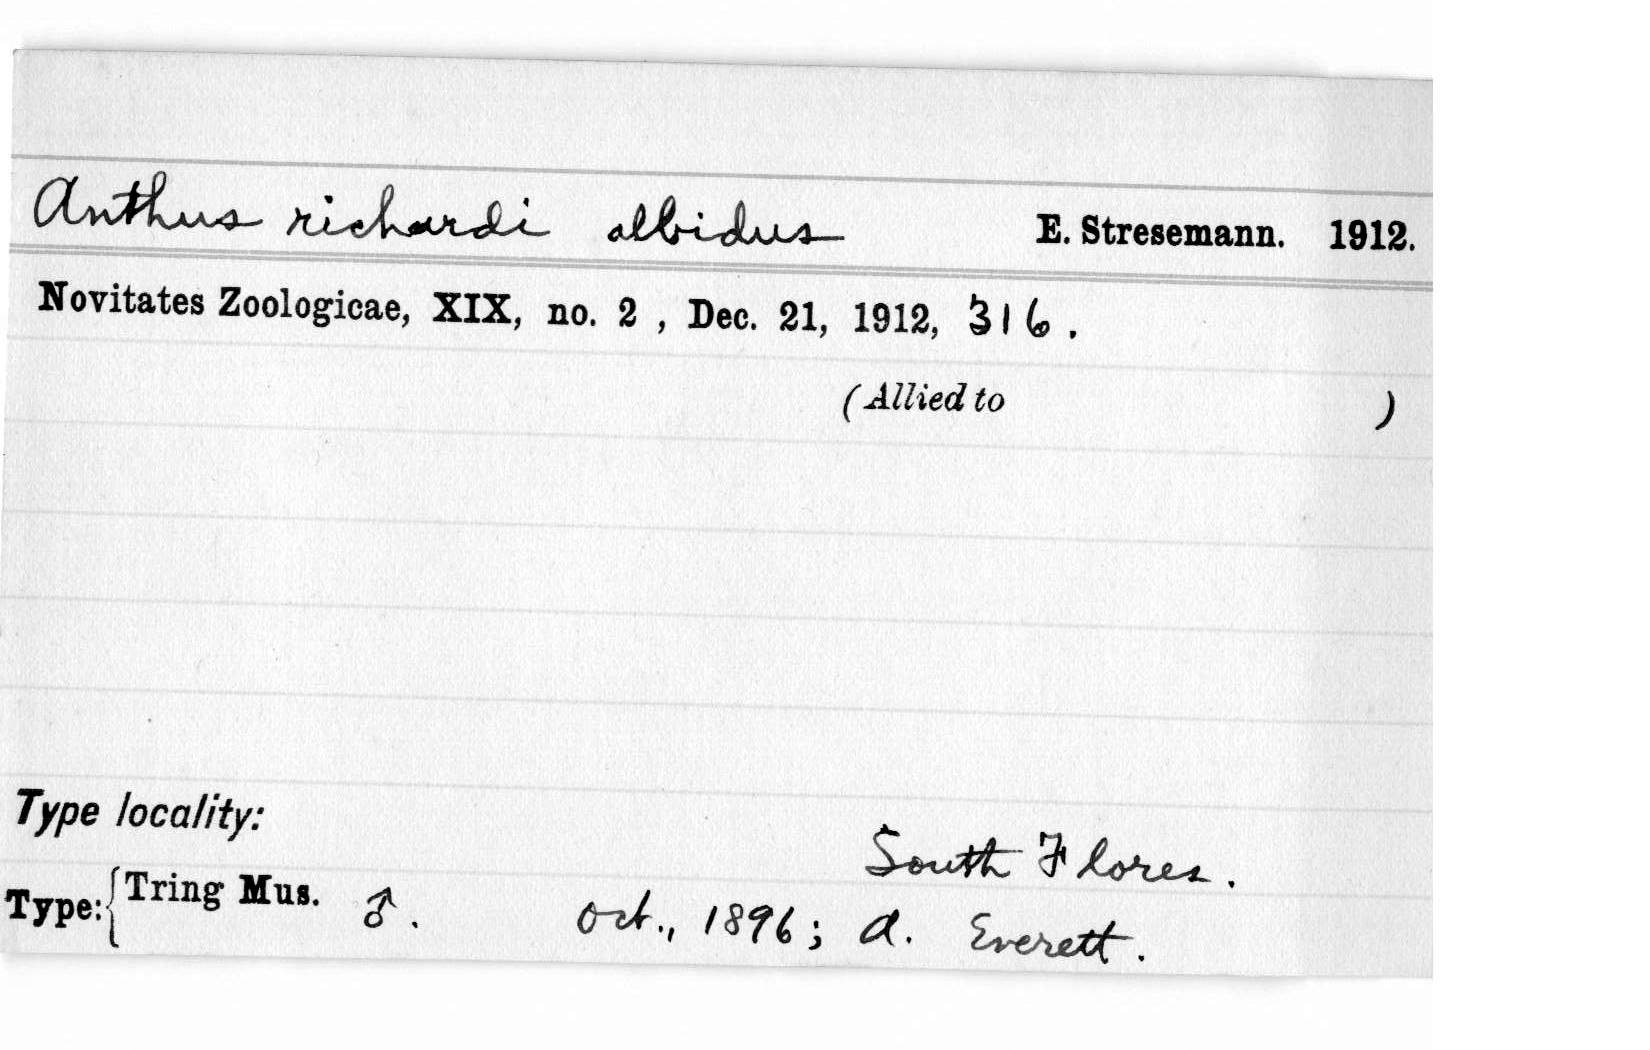 Anthus richardi albidus E. Stresemann. 1912.
Novitates Zoologicae, XIX, no. 2 , Dec. 21, 1912, 316.
(Allied to )
Type locality:
South Flores.
Type: { Tring Mus. ♂. Oct., 1896; A. Everett.